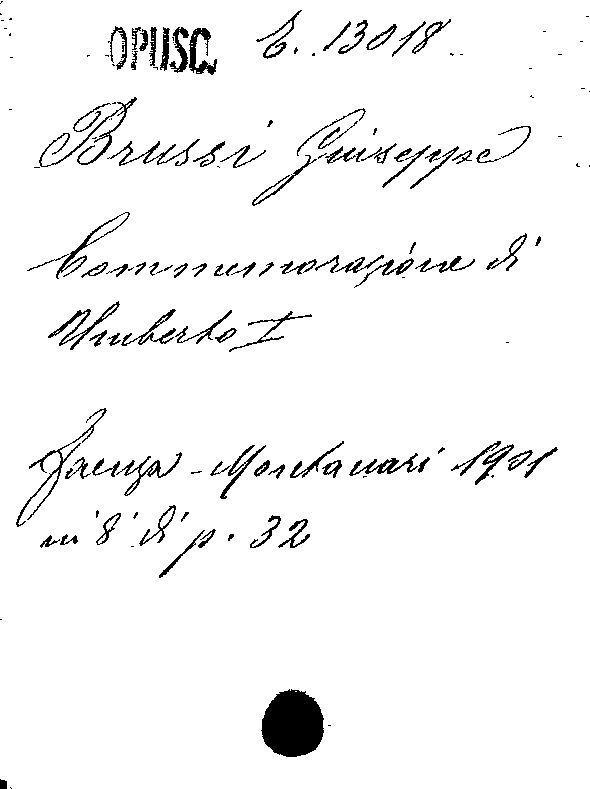 OPUSC. E. 13018
Brussi Giuseppe
Commemorazione di
Umberto I
Faenza - Montanari 1901
in 8° di p. 32